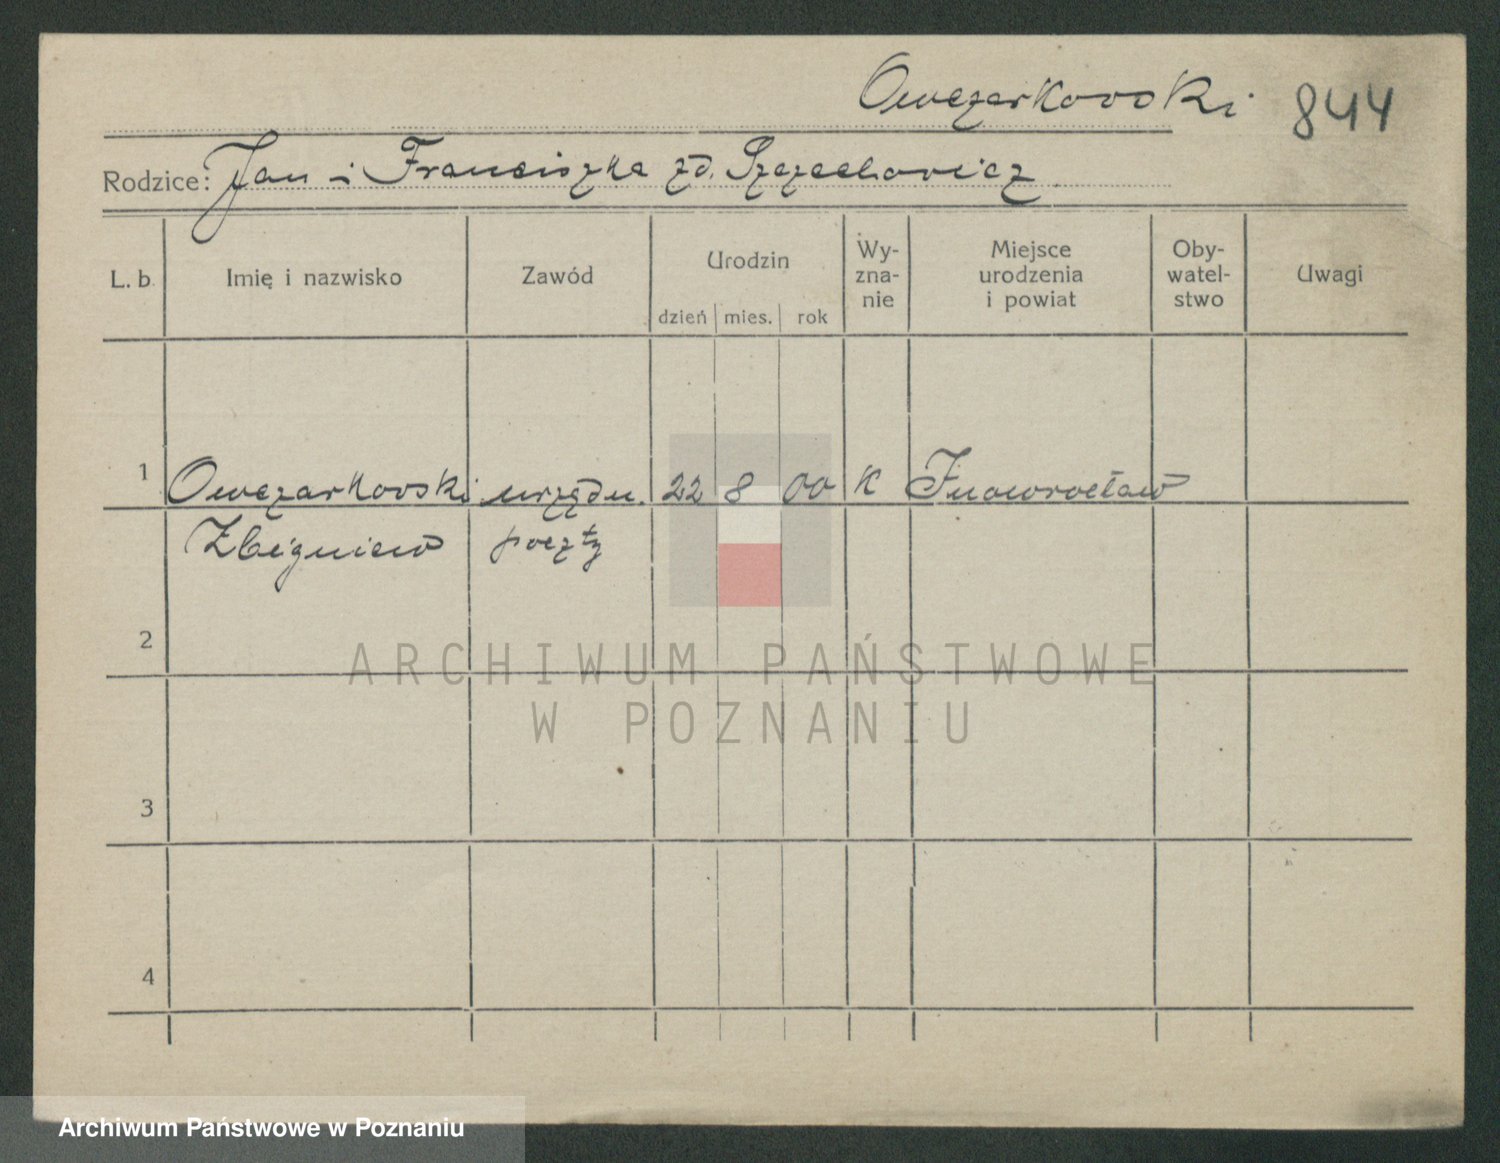 Owczarkowski 844
Rodzice: Jan i Franciszka zd. Szczechowicz
L. b. Imię i nazwisko Zawód Urodzin dzień mies. rok Wy-zna-nie Miejsce urodzenia i powiat Oby-watel-stwo Uwagi
1 Owczarkowski urzędn. 22 8 00 K Inowrocław
Zbigniew poczty
2
ARCHIWUM PAŃSTWOWE
W POZNANIU
3
4
Archiwum Państwowe w Poznaniu